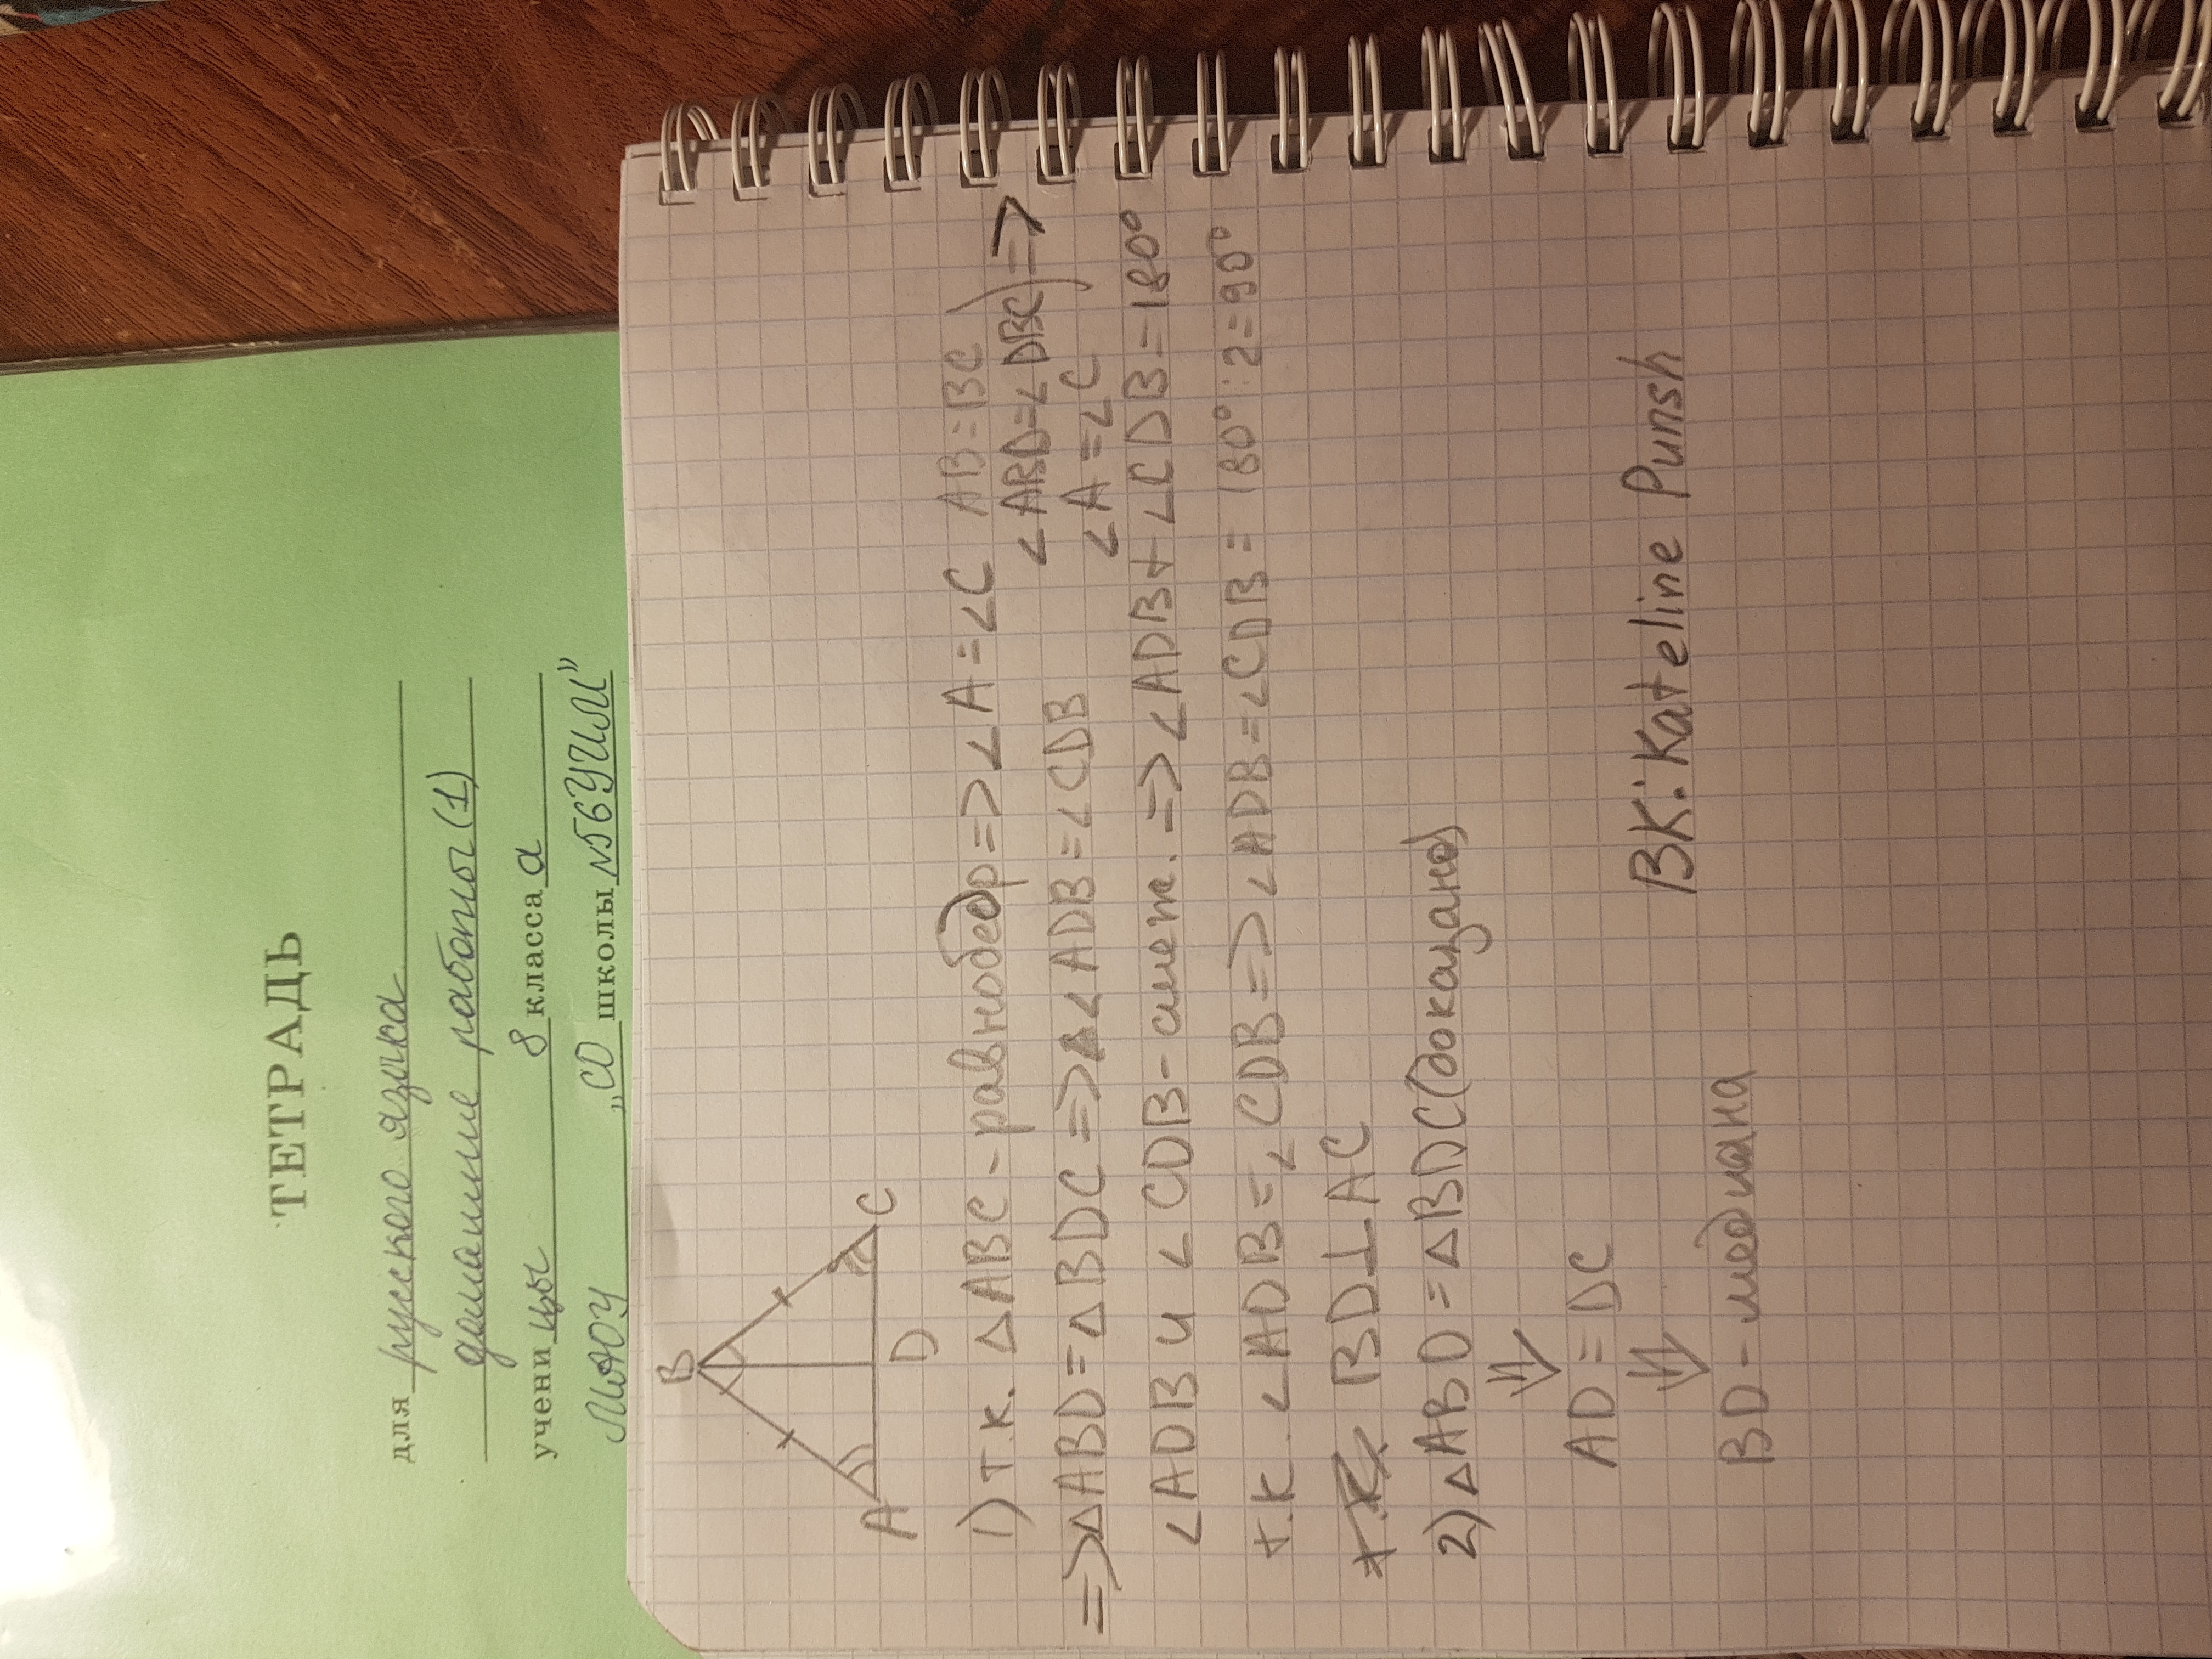 ТЕТРАДЬ
для русского языка
домашние работы (1)
учени цы 8 класса а
МАОУ „СО школы №56 УИМ”
B
A D C
1) т.к. △ABC - равнобедр => ∠A = ∠C AB=BC
∠ABD=∠DBC) =>
∠A=∠C
=>△ABD=△BDC => ∠ADB=∠CDB
∠ADB и ∠CDB - смеж. => ∠ADB+∠CDB=180°
т.к. ∠ADB=∠CDB => ∠ADB=∠CDB= 180°:2=90°
BD⊥AC
2) △ABD = △BDC (доказано)
⇓
AD = DC
⇓
BD - медиана
ВК: Kateline Punsh